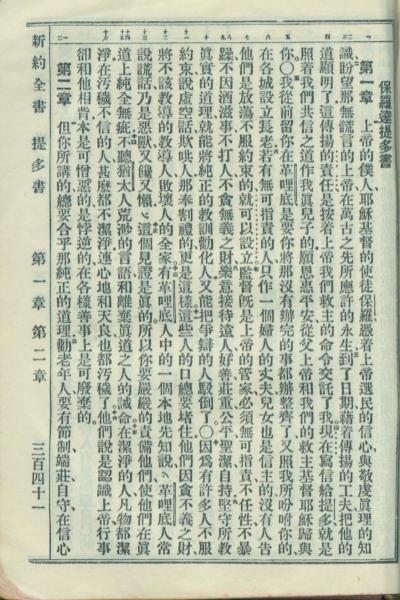 保羅達提多書
第一章 上帝的僕人、耶穌基督的使徒保羅、憑着上帝選民的信心與敬虔眞理的知
識、盼望那無謊言的上帝在萬古之先所應許的永生、到了日期、藉着傳揚的工夫把他的
道顯明了、這傳揚的責任是按着上帝我們救主的命令交託了我、現在寫信給提多、就是
照着我們共信之道作我眞兒子的、願恩惠平安從父上帝和我們的救主基督耶穌歸與
你○我從前留你在革哩底、是要你將那沒有辦完的事都辦整齊了、又照我所吩咐你的、
在各城設立長老、若有無可指責的人、只作一個婦人的丈夫、兒女也是信主的、沒有人告
他們是放蕩不服約束的、就可以設立、監督旣是上帝的管家、必須無可指責、不任性、不暴
躁、不因酒滋事、不打人、不貪無義之財、樂意接待遠人、好善、莊重、公平、聖潔、自持、堅守所敎
眞實的道理、就能將純正的敎訓勸化人、又能把爭辯的人駁倒了○因爲有許多人不服
約束、說虛空話欺哄人、那奉割禮的更是這樣、這些人的口總要堵住、他們因貪不義之財、
將不該敎導的敎導人、敗壞人的全家、有革哩底人中的一個本地先知說、革哩底人常
說謊話、乃是惡獸、又饞又懶、這個見證是眞的、所以你要嚴嚴的責備他們、使他們在眞
道上純全無疵、不聽猶太人荒渺的言語、和離棄眞道之人的誡命、在潔淨的人凡物都潔
淨、在汚穢不信的人甚麽都不潔淨、連心地和天良也都汚穢了、他們說是認識上帝、行事
卻和他相背、本是可憎惡的、是悖逆的、在各樣善事上是可廢棄的、
第二章 但你所講的總要合乎那純正的道理、勸老年人要有節制、端莊、自守、在信心
新約全書 提多書 第一章 第二章 三百四十一